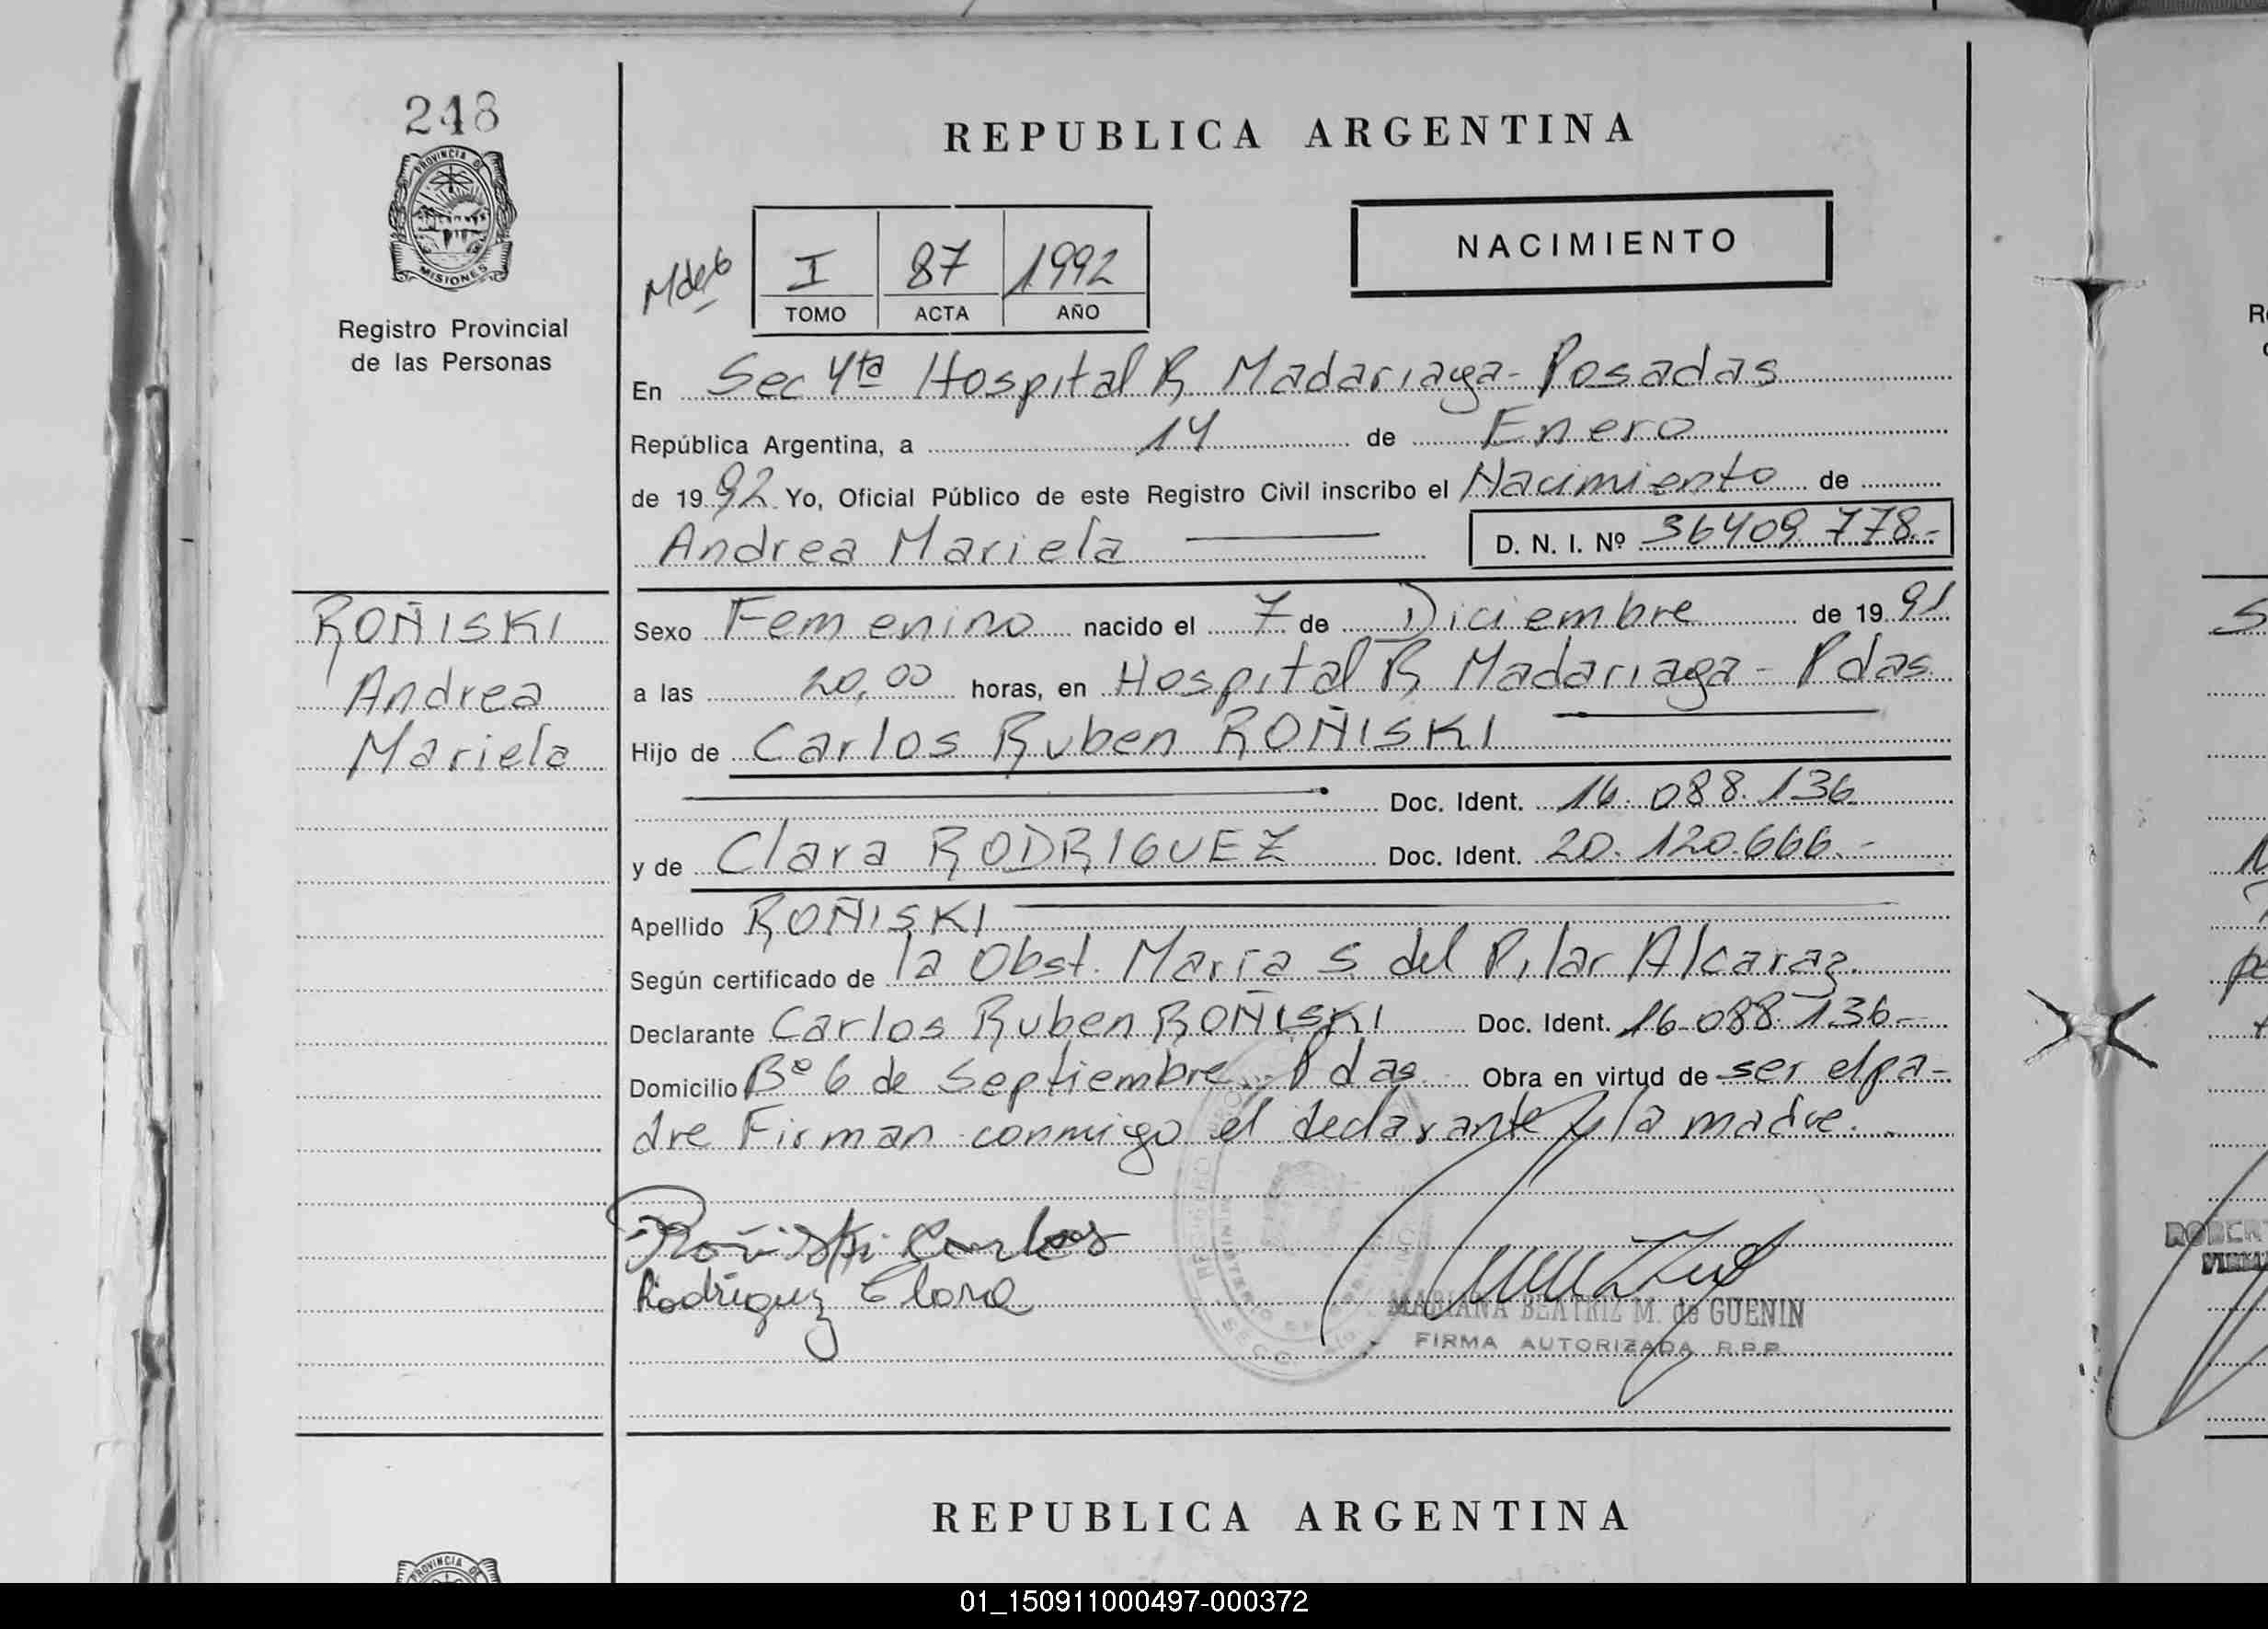 248
PROVINCIA DE
MISIONES
Registro Provincial
de las Personas
REPUBLICA ARGENTINA
I 87 1992
TOMO ACTA AÑO
NACIMIENTO
En Sec 4ta Hospital R Madariaga - Posadas
República Argentina, a 14 de Enero
de 1992 Yo, Oficial Público de este Registro Civil inscribo el Nacimiento de
Andrea Mariela D. N. I. Nº 36409.778.-
ROÑISKI
Andrea
Mariela
Sexo Femenino nacido el 7 de Diciembre de 1991
a las 20,00 horas, en Hospital R Madariaga - Pdas
Hijo de Carlos Ruben ROÑISKI
Doc. Ident. 16.088.136
y de Clara RODRIGUEZ Doc. Ident. 20.120.666.-
Apellido ROÑISKI
Según certificado de la Obst. María S del Pilar Alcaraz.
Declarante Carlos Ruben ROÑISKI Doc. Ident. 16.088.136-
Domicilio Bº 6 de Septiembre - Pdas Obra en virtud de ser el pa-
dre Firman conmigo el declarante y la madre.
Roñiski Carlos
Rodriguez Clara
MARIANA BEATRIZ M. de GUENIN
FIRMA AUTORIZADA R.P.P.
REPUBLICA ARGENTINA
PROVINCIA DE
01_150911000497-000372